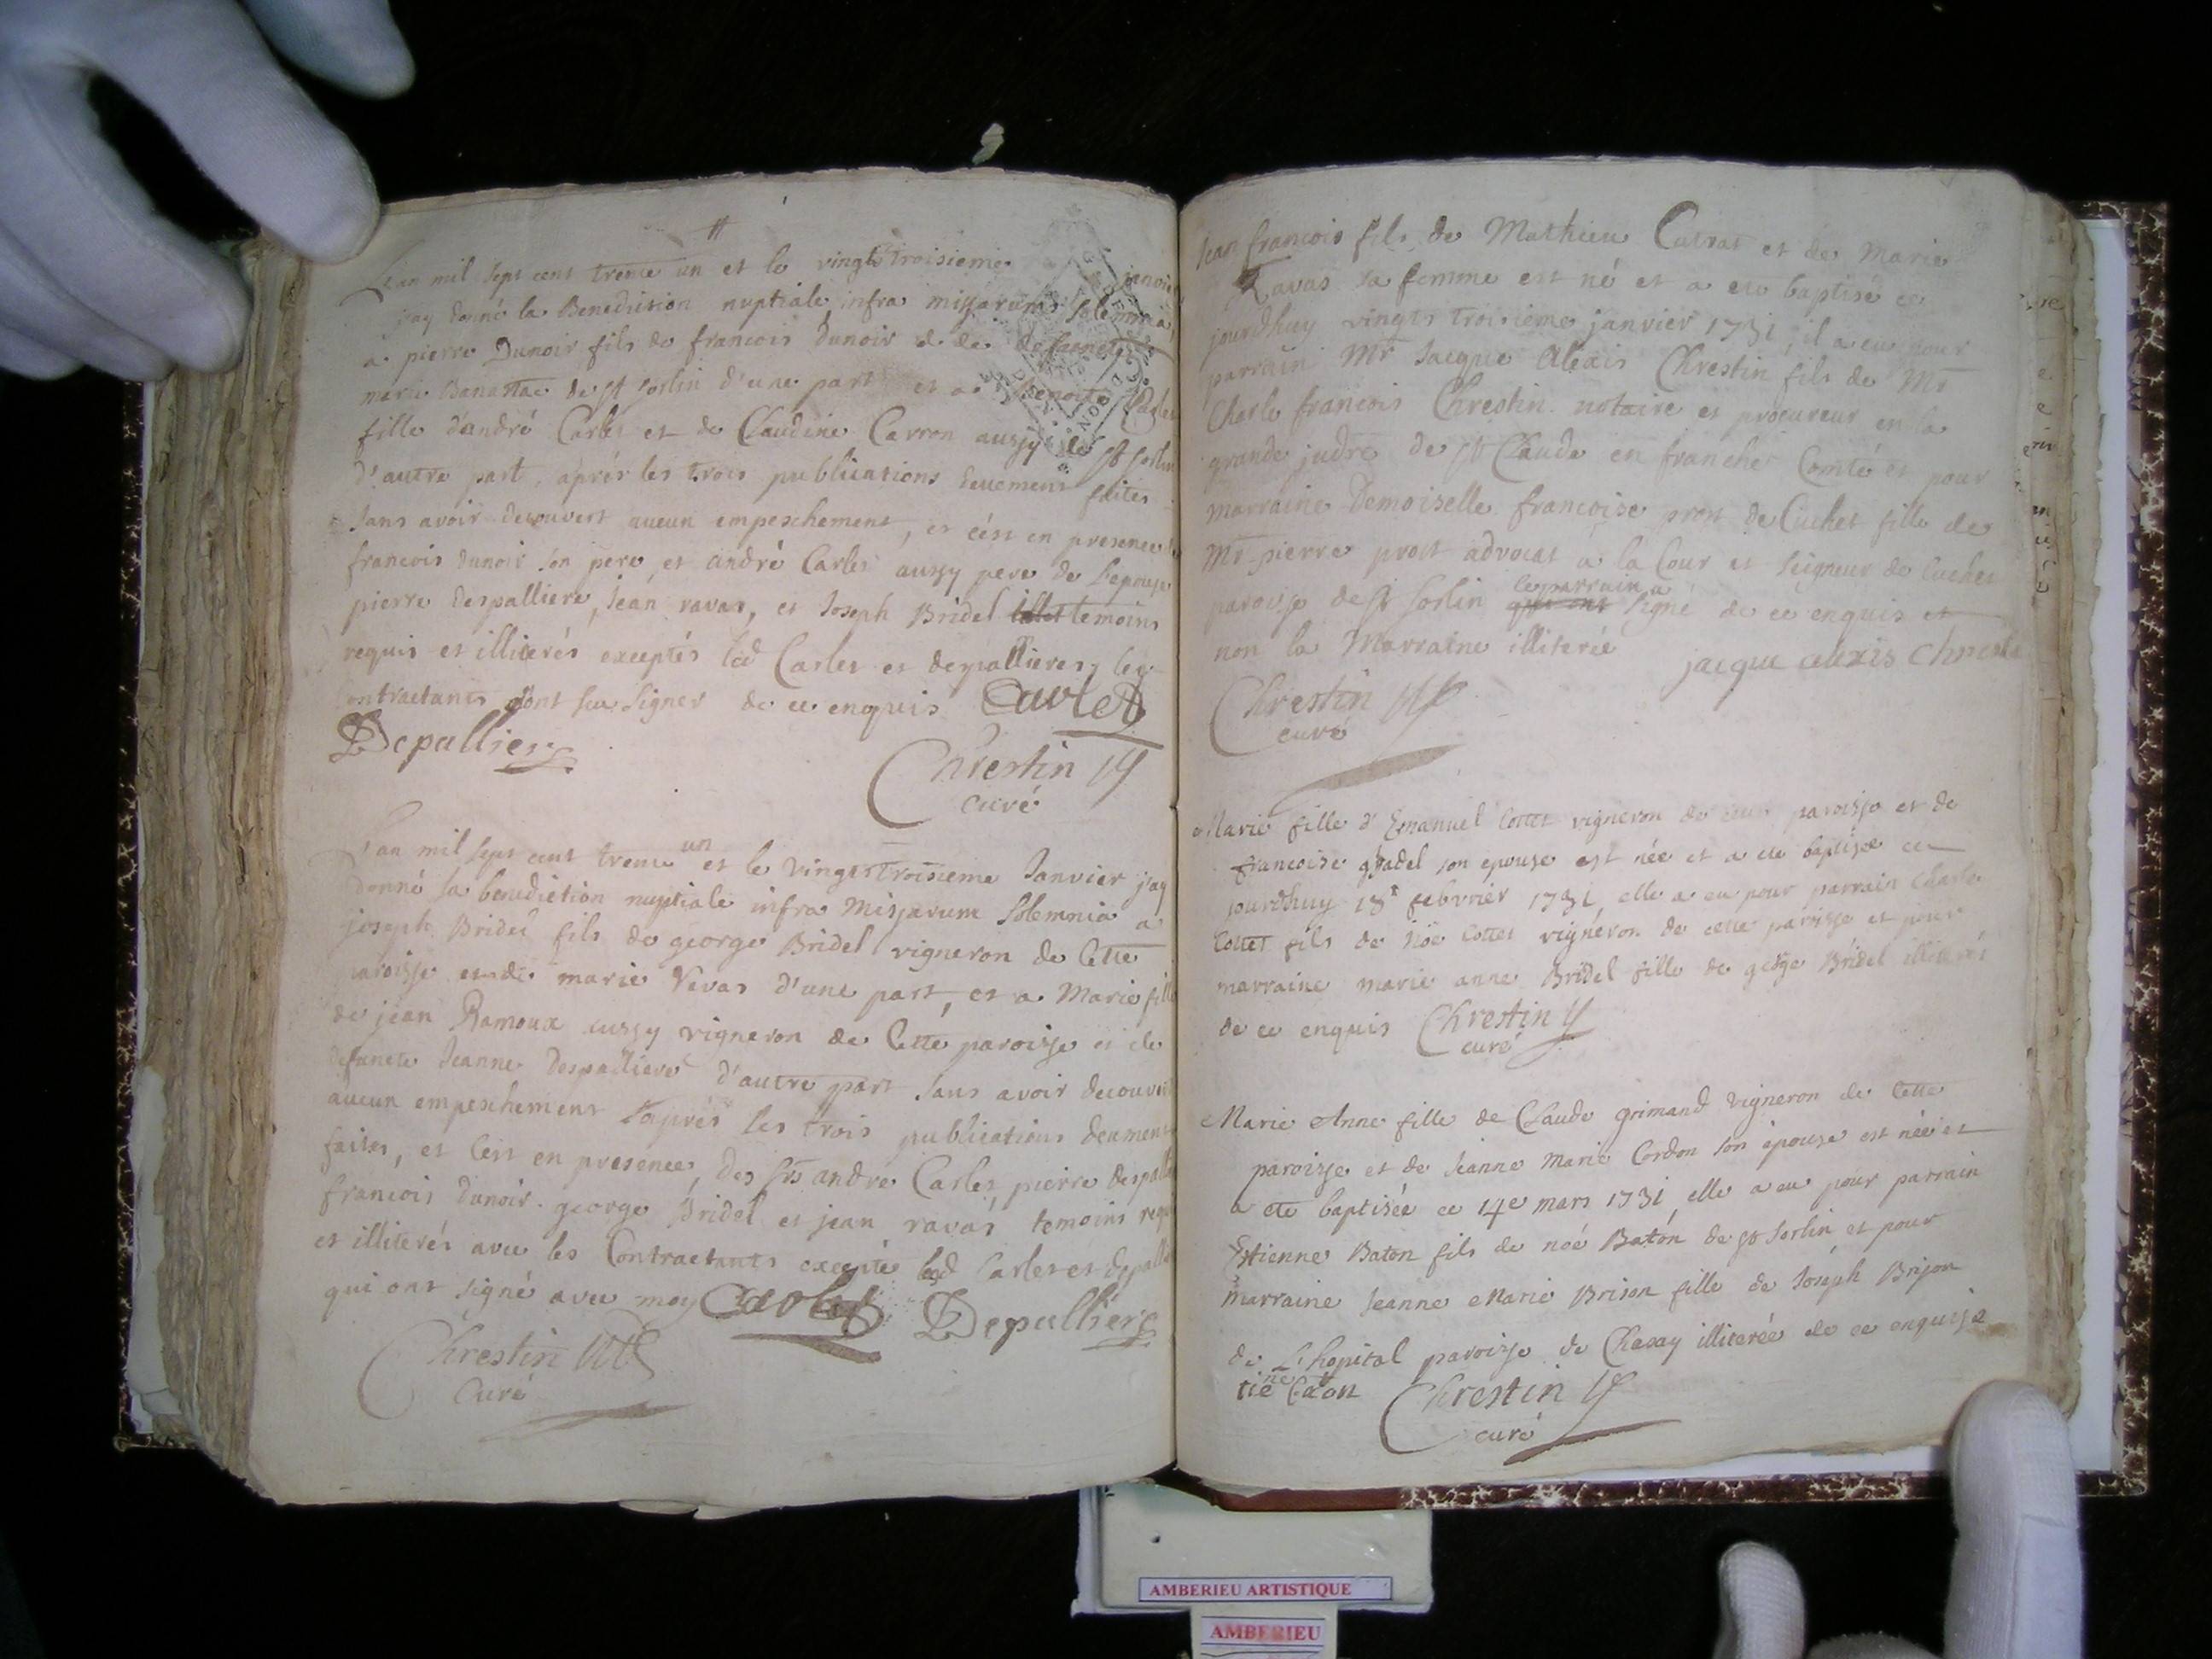 Lan mil sept cent trente un et le vingt troisieme janvier
jay donné la Benediction nuptiale infra missarum solemnia
a pierre Dunoir fils de francois dunoir & de defuncte
marie de st sorlin d'une part et a Benoite Carlet
fille d'andré Carlet et de Claudine Carron aussy de st sorlin
d'autre part, aprés les trois publications deuement faites
sans avoir decouvert aucun empeschement, et c'est en presence de
francois dunoir son pere, et andré Carlet aussy pere de l'epouse
pierre despalliere, Jean ravas, et Joseph Bridel temoins
requis et illiterés exceptés led Carlet et despallieres, les
contractants n'ont sçu signer de ce enquis Carlet
Depalliere
Chrestin
curé
Lan mil sept cent trente un et le vingt troisieme Janvier j'ay
donné la benediction nuptiale infra missarum solemnia a
joseph Bridel fils de george Bridel vigneron de cette
paroisse et de marie Vevas d'une part, et a Marie fille
de jean Ramoux aussy vigneron de cette paroisse et de
defuncte Jeanne Despalliere d'autre part sans avoir decouvert
aucun empeschement aprés les trois publications deument
faites, et c'est en presence, des srs andré Carlet, pierre despalliere
francois dunoir, george Bridel et jean ravas temoins requis
et illiterés avec les Contractants excepté led Carlet et depalliere
qui ont signé avec moy Carlet Depalliere
Chrestin
Curé
Jean francois fils de Mathieu Cutrat et de Marie
Ravas sa femme est né et a eté baptisé ce
jourdhuy vingts troisieme janvier 1731, il a eu pour
parrain Mr Jacque Alexis Chrestin fils de Mr
Charle francois Chrestin notaire et procureur en la
grande judre de St Claude en franche Comté et pour
marraine Demoiselle francoise prost de Cuchet fille de
Mr pierre prost advocat a la Cour et seigneur de Cuchet
paroisse de st sorlin le parrain a signé de ce enquis et
non la Marraine illiterée jacque alexis Chrestin
Chrestin
curé
Marie fille d'Emanuel Cottet vigneron de paroisse et de
francoise gradel son epouse est née et a eté baptisée ce
jourdhuy 18e febvrier 1731, elle a eu pour parrain Charle
Cottet fils de Noé Cottet vigneron de cette paroisse et pour
marraine marie anne Bridel fille de george Bridel illiterés
de ce enquis Chrestin
curé
Marie Anne fille de Claude grimand vigneron de cette
paroisse et de Jeanne Marie Cordon son épouse est née et
a eté baptisée ce 14e mars 1731, elle a eu pour parrain
Estienne Baton fils de noé Baton de st sorlin et pour
marraine Jeanne Marie Brison fille de Joseph Brison
de L'hopital paroisse de Chasay illiterée de ce enquise
Chrestin
curé
AMBERIEU ARTISTIQUE
AMBERIEU